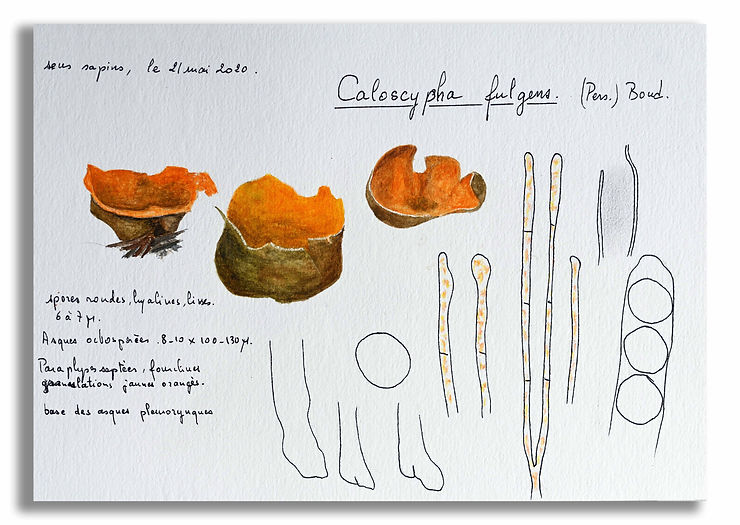 sous sapins, le 21 mai 2020.
Caloscypha fulgens. (Pers.) Boud.
spores rondes, hyalines, lisses.
6 à 7 µ.
Asques octosporées. 8-10 x 100-130 µ.
Paraphyses septées, fourchues
granulations jaunes orangés.
base des asques pleurorynques